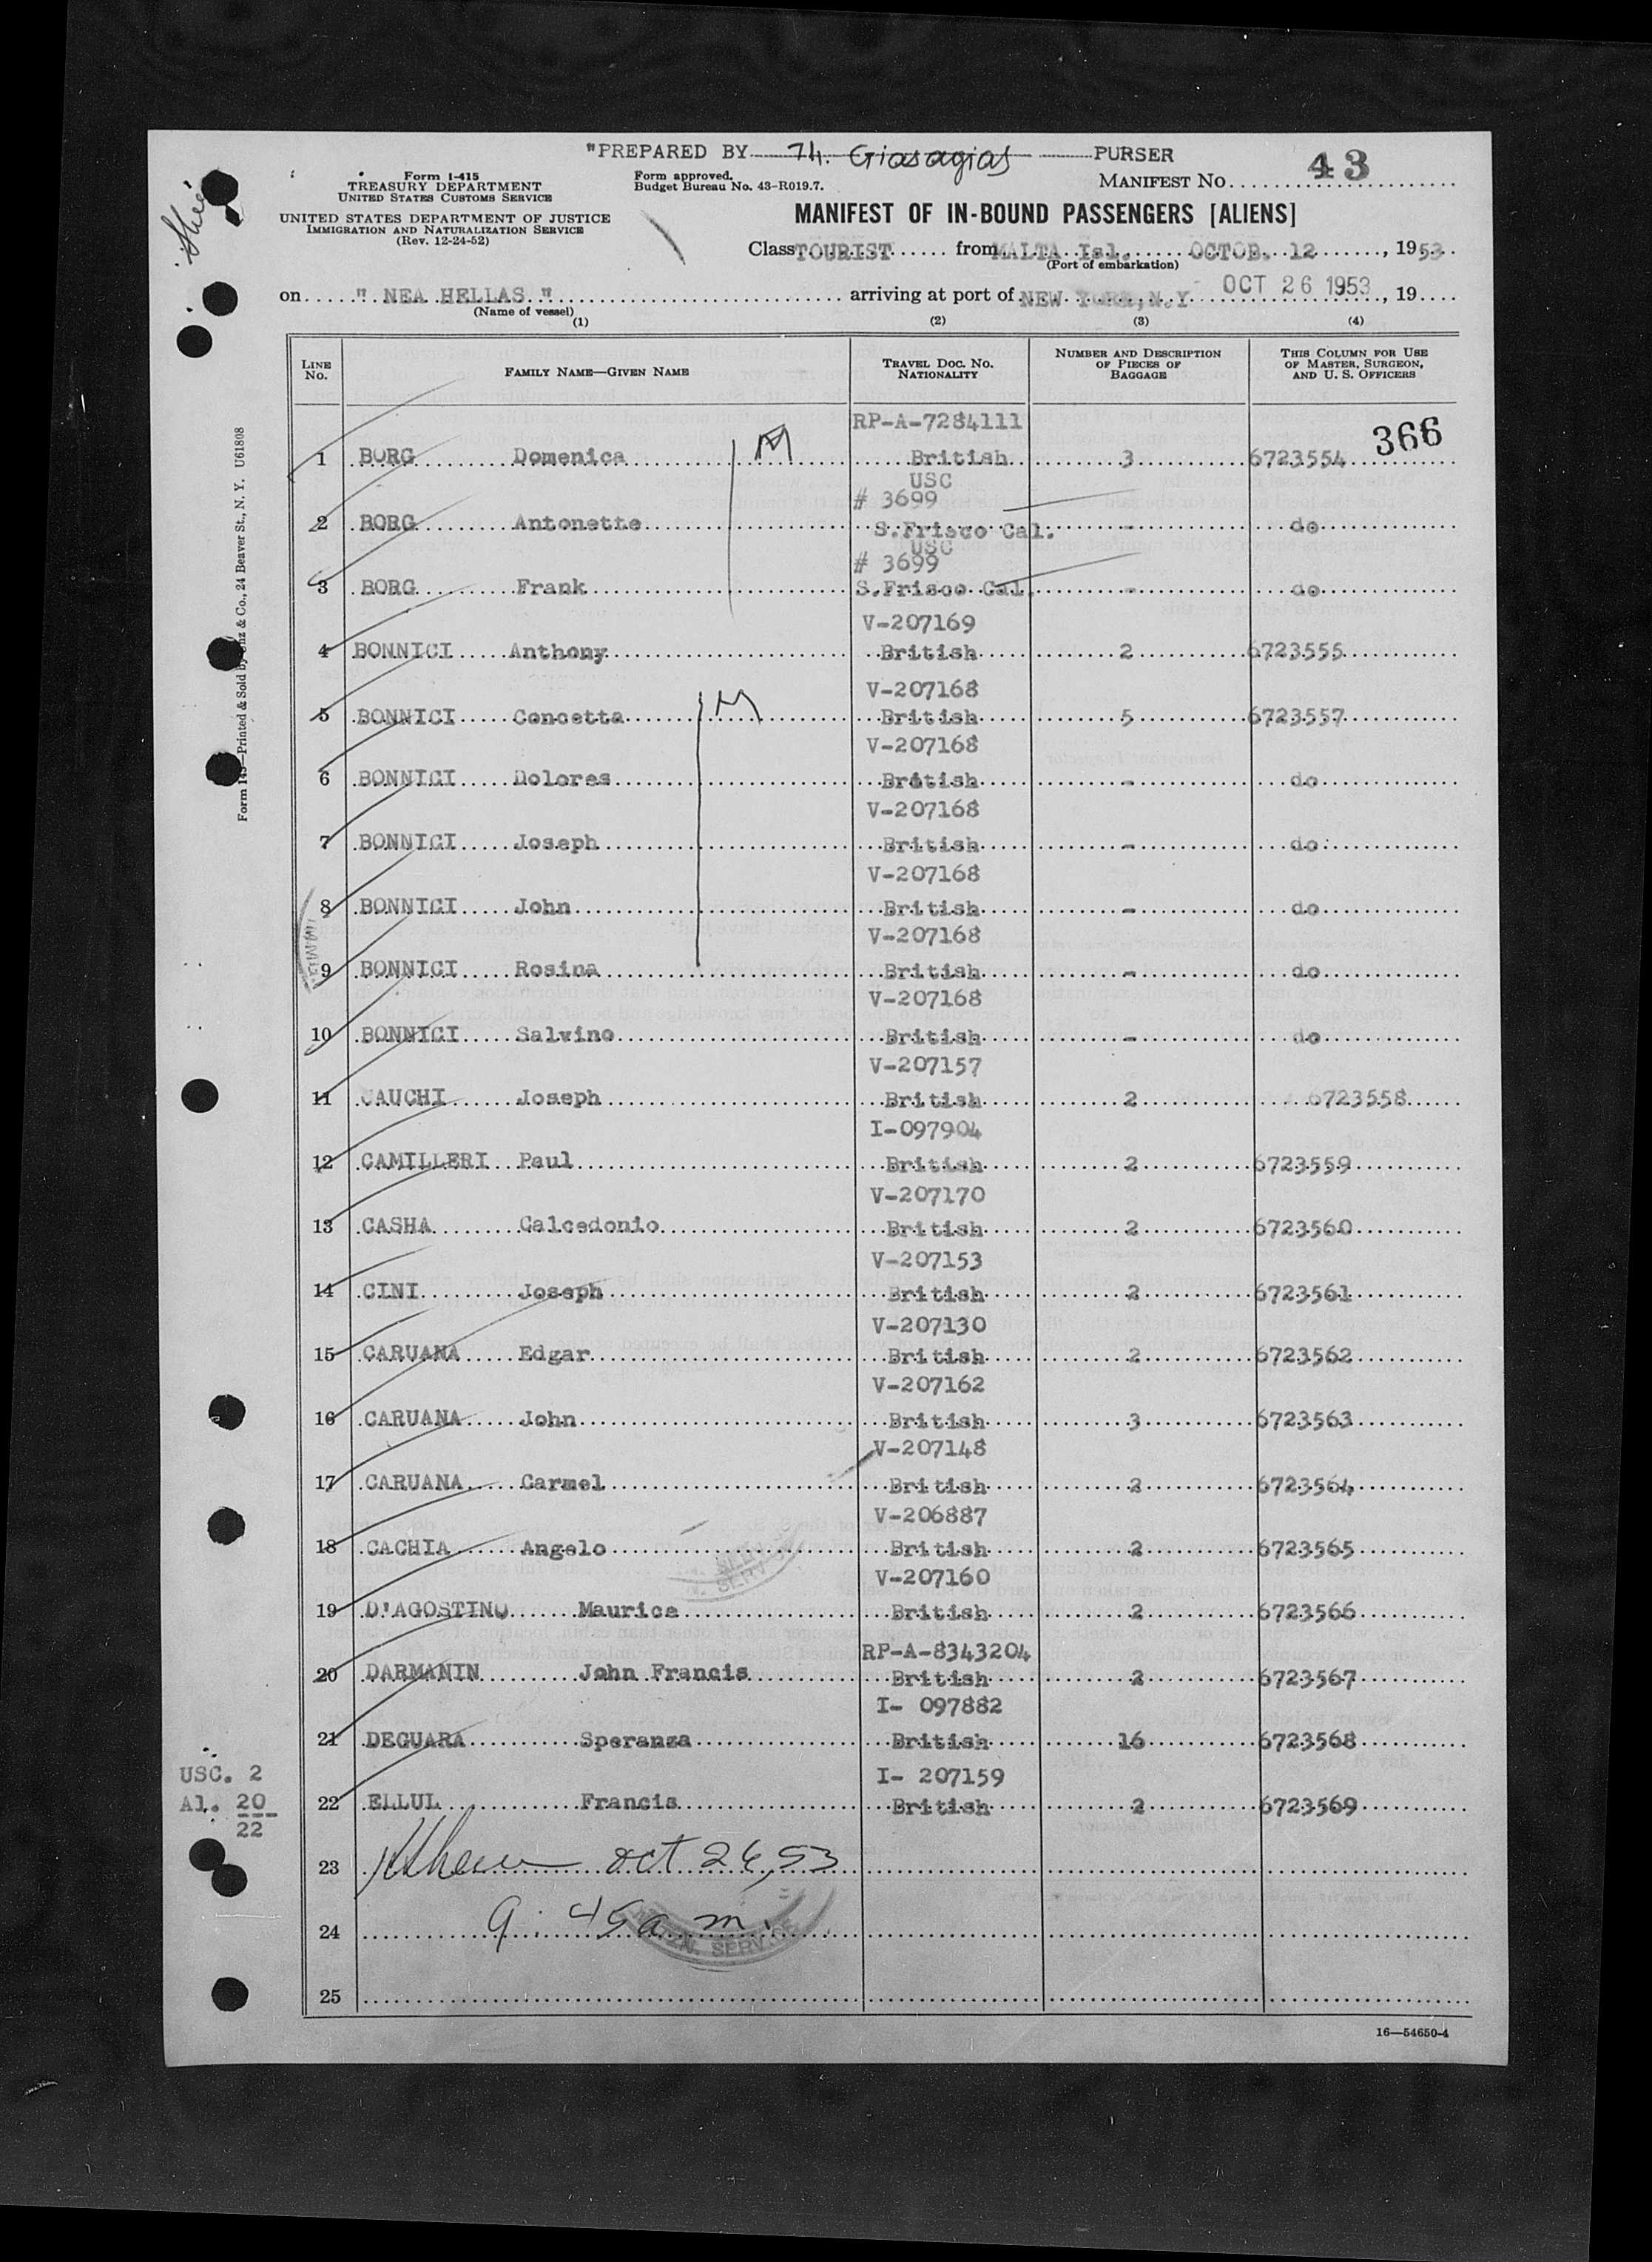 "PREPARED BY Th. Giasagias PURSER
Form I-415
TREASURY DEPARTMENT
UNITED STATES CUSTOMS SERVICE
UNITED STATES DEPARTMENT OF JUSTICE
IMMIGRATION AND NATURALIZATION SERVICE
(Rev. 12-24-52)
Form approved.
Budget Bureau No. 43-R019.7.
MANIFEST NO. 43
MANIFEST OF IN-BOUND PASSENGERS [ALIENS]
Class TOURIST from MALTA Isl. OCTOB. 12, 1953
(Port of embarkation)
on " NEA HELLAS " arriving at port of NEW YORK, N.Y OCT 26 1953, 19
(Name of vessel)
(1) (2) (3) (4)
LINE NO. FAMILY NAME—GIVEN NAME TRAVEL DOC. NO. NATIONALITY NUMBER AND DESCRIPTION OF PIECES OF BAGGAGE THIS COLUMN FOR USE OF MASTER, SURGEON, AND U. S. OFFICERS
RP-A-7284111 366
1 BORG Domenica M British 3 6723554
USC
# 3699
2 BORG Antonette S.Frisco Cal. - do
USC
# 3699
3 BORG Frank S.Frisco Cal. - do
V-207169
4 BONNICI Anthony British 2 6723555
V-207168
5 BONNICI Concetta M British 5 6723557
V-207168
6 BONNICI Dolores British - do
V-207168
7 BONNICI Joseph British - do
V-207168
8 BONNICI John British - do
V-207168
9 BONNICI Rosina British - do
V-207168
10 BONNICI Salvino British - do
V-207157
11 CAUCHI Joseph British 2 6723558
I-097904
12 CAMILLERI Paul British 2 6723559
V-207170
13 CASHA Calcedonio British 2 6723560
V-207153
14 CINI Joseph British 2 6723561
V-207130
15 CARUANA Edgar British 2 6723562
V-207162
16 CARUANA John British 3 6723563
V-207148
17 CARUANA Carmel British 2 6723564
V-206887
18 CACHIA Angelo British 2 6723565
V-207160
19 D'AGOSTINO Maurice British 2 6723566
RP-A-8343204
20 DARMANIN John Francis British 2 6723567
I- 097882
21 DEGUARA Speranza British 16 6723568
I- 207159
22 ELLUL Francis British 2 6723569
USC. 2
Al. 20
22
23 oct 26, 53
24 9:45 a m.
25
16—54650-4
Form 145—Printed & Sold by Unz & Co., 24 Beaver St., N. Y. U61808